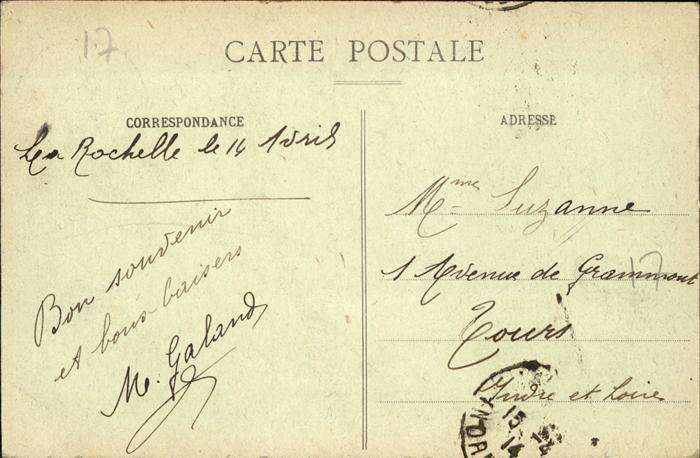 17
CARTE POSTALE
CORRESPONDANCE
La Rochelle le 14 Avril
Bon souvenir
et bons baisers
M. Galand
ADRESSE
Mme Suzanne
1 Avenue de Grammont
17
Tours
Indre et Loire
15
14